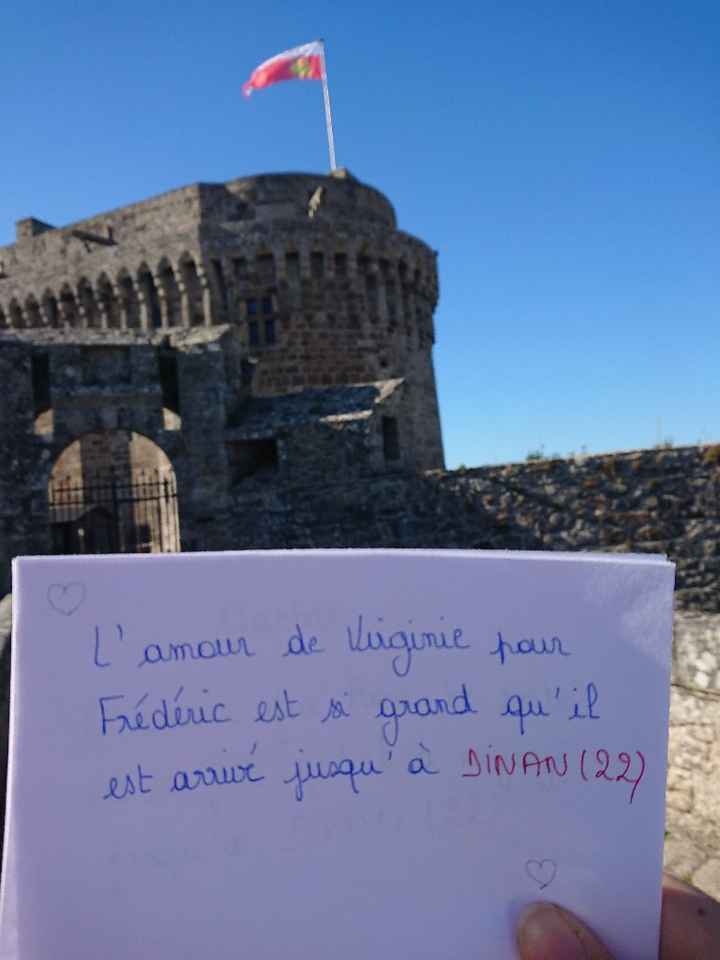 L'amour de Virginie pour
Frédéric est si grand qu'il
est arrivé jusqu'à DINAN (22)